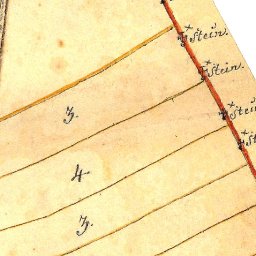 Stein.
Stein.
3.
Stein
Stein
4
3.